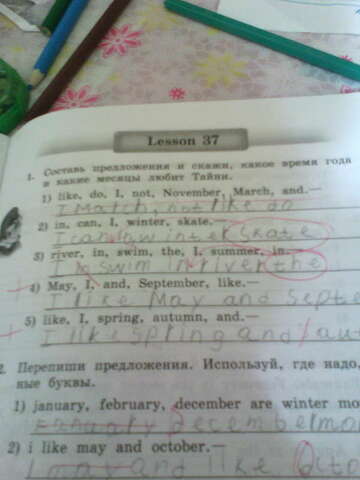 Lesson 37
1. Составь предложения и скажи, какое время года
и какие месяцы любит Тайни.
1) like, do, I, not, November, March, and.—
I March, not like do
2) in, can, I, winter, skate.—
I can winter skate
3) river, in, swim, the, I, summer, in.
I swim in river the
4) May, I, and, September, like.—
I like May and Septe
5) like, I, spring, autumn, and.—
I like spring and au
2. Перепиши предложения. Используй, где надо,
ные буквы.
1) january, february, december are winter mo
december mo
2) i like may and october.—
I may and like Octo